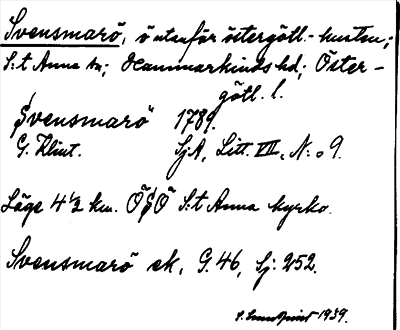 Svensmarö, ö utanför östergötl.-kusten;
S:t Anna sn; Hammarkinds hd; Öster-
götl. l.
Svensmarö 1789.
G. Klint. SjA, Litt. VII, N:o 9.
Läge 4 1/2 km. ÖSÖ S:t Anna kyrka.
Svensmarö ek, G. 46, Sj: 252.
1939.